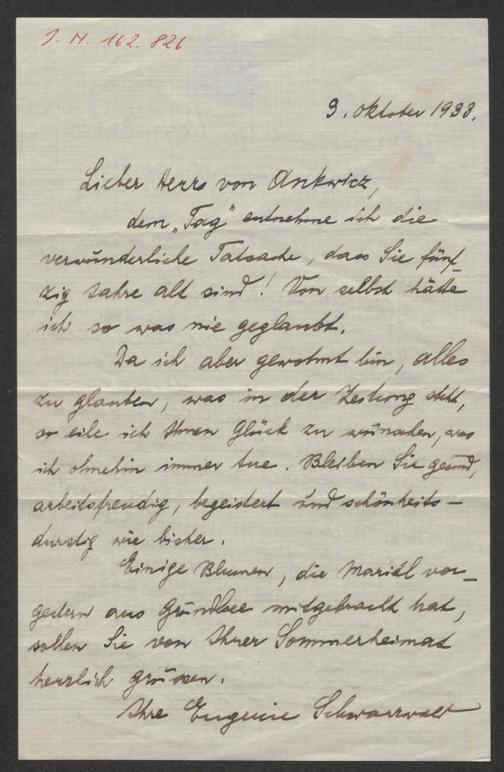 J. N. 162.826
3. Oktober 1933.
Lieber Herr von Ankwicz,
dem „Tag“ entnehme ich die
verwunderliche Tatsache, dass Sie fünf-
zig Jahre alt sind! Von selbst hätte
ich so was nie geglaubt.
Da ich aber gewohnt bin, alles
zu glauben, was in der Zeitung steht,
so eile ich Ihnen Glück zu wünschen, was
ich ohnehin immer tue. Bleiben Sie gesund,
arbeitsfreudig, begeistert und schönheits-
durstig wie bisher.
Einige Blumen, die Mariedl vor-
gestern aus Grundlsee mitgebracht hat,
sollen Sie von Ihrer Sommerheimat
herzlich grüssen.
Ihre Eugenie Schwarzwald